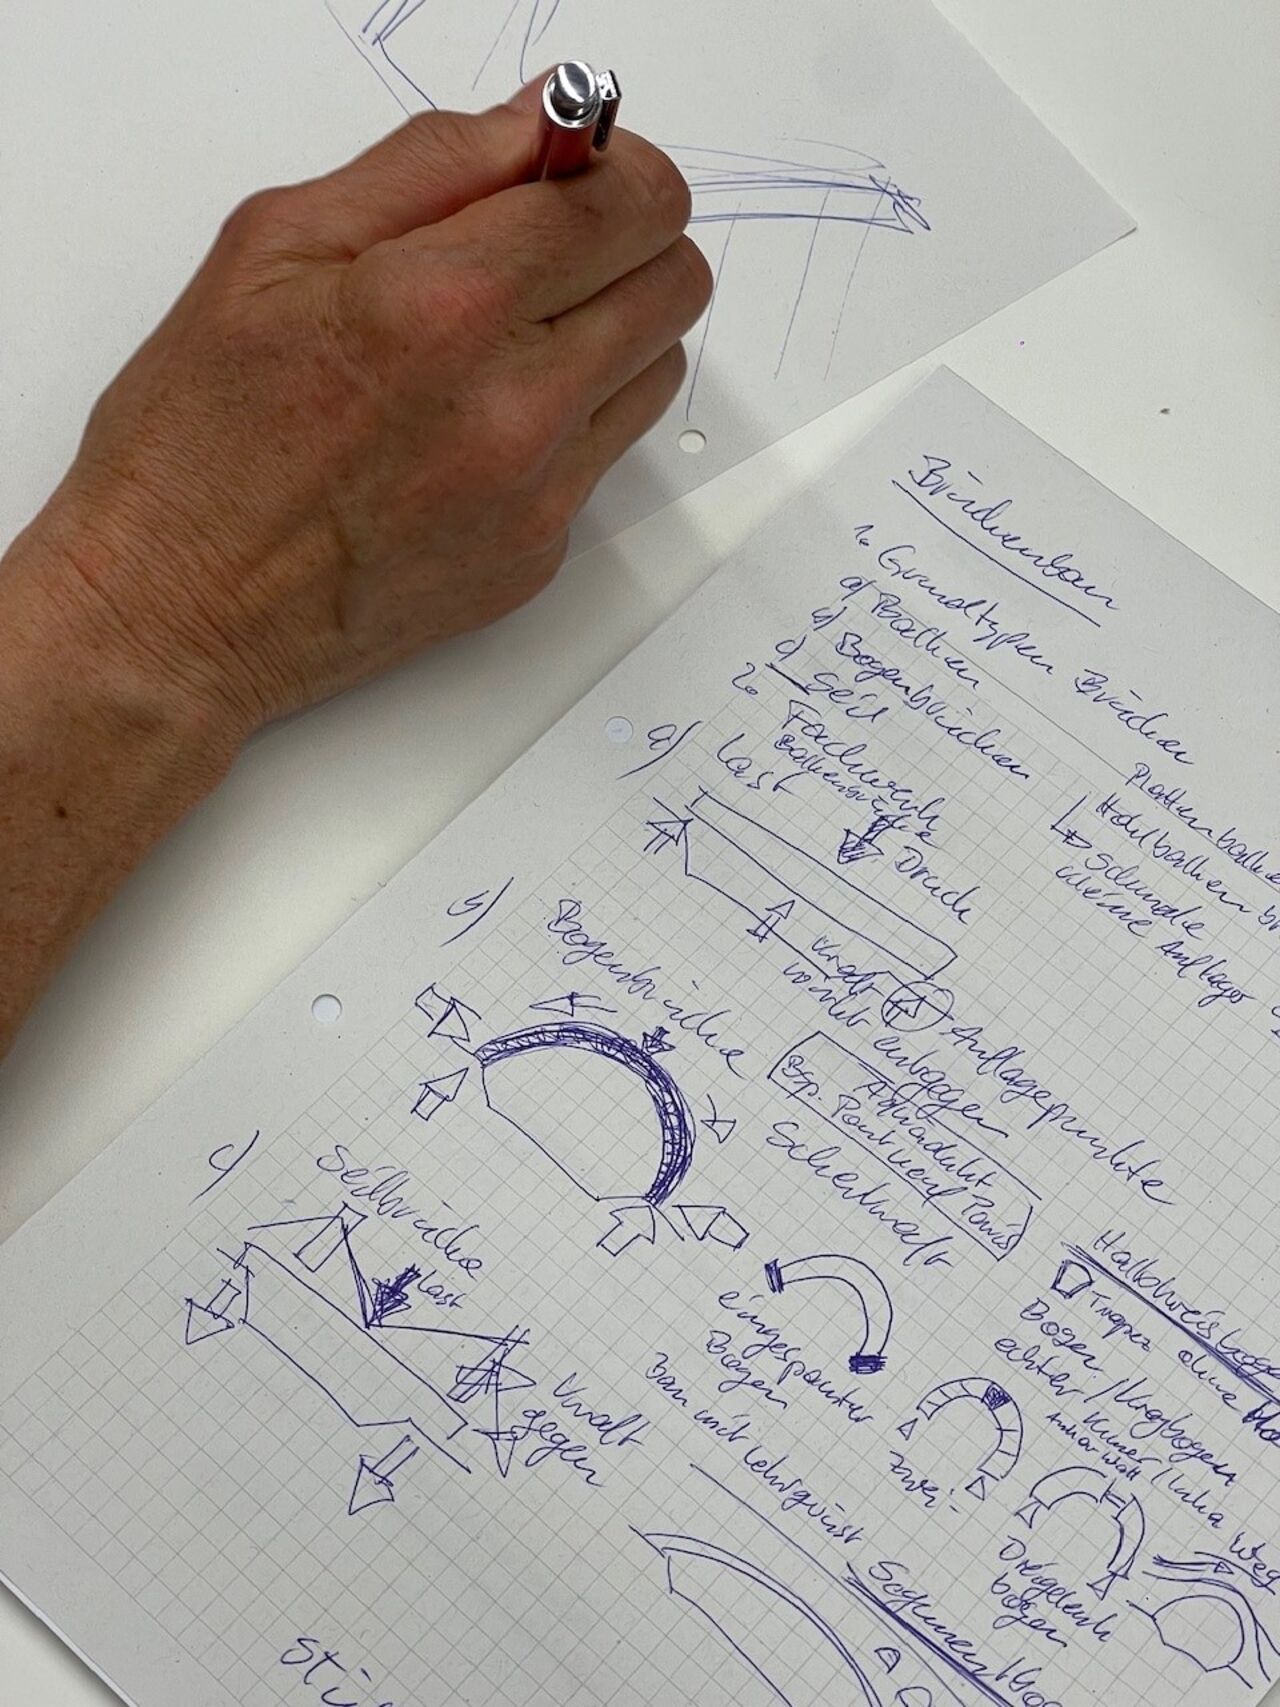 Brückenbau
1. Grundtypen Brücken
a) Balken
b) Bogenbrücken
c) Seil
2. Fachwerk
Balkenbrücke
Plattenbalken
Hohlbalken
Schmale
kleine Auflager
a) Last
Druck
Kraft
wirkt entgegen
Auflagepunkte
b) Bogenbrücke
Aquädukt
Bsp. Pont neuf Paris
Scheitel
c) Seilbrücke
Last
Kraft
gegen
eingespannter
Bogen
Bau mit Lehrgerüst
Halbkreisbogen
Trapez ohne
Bogen
echter / Kragbogen
Zwei-
Dreigelenk
bogen
Weg
Segmentbo
Sti